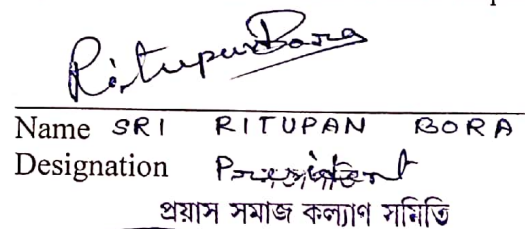 Ritupan Bora
Name SRI RITUPAN BORA
Designation President
প্রয়াস সমাজ কল্যাণ সমিতি